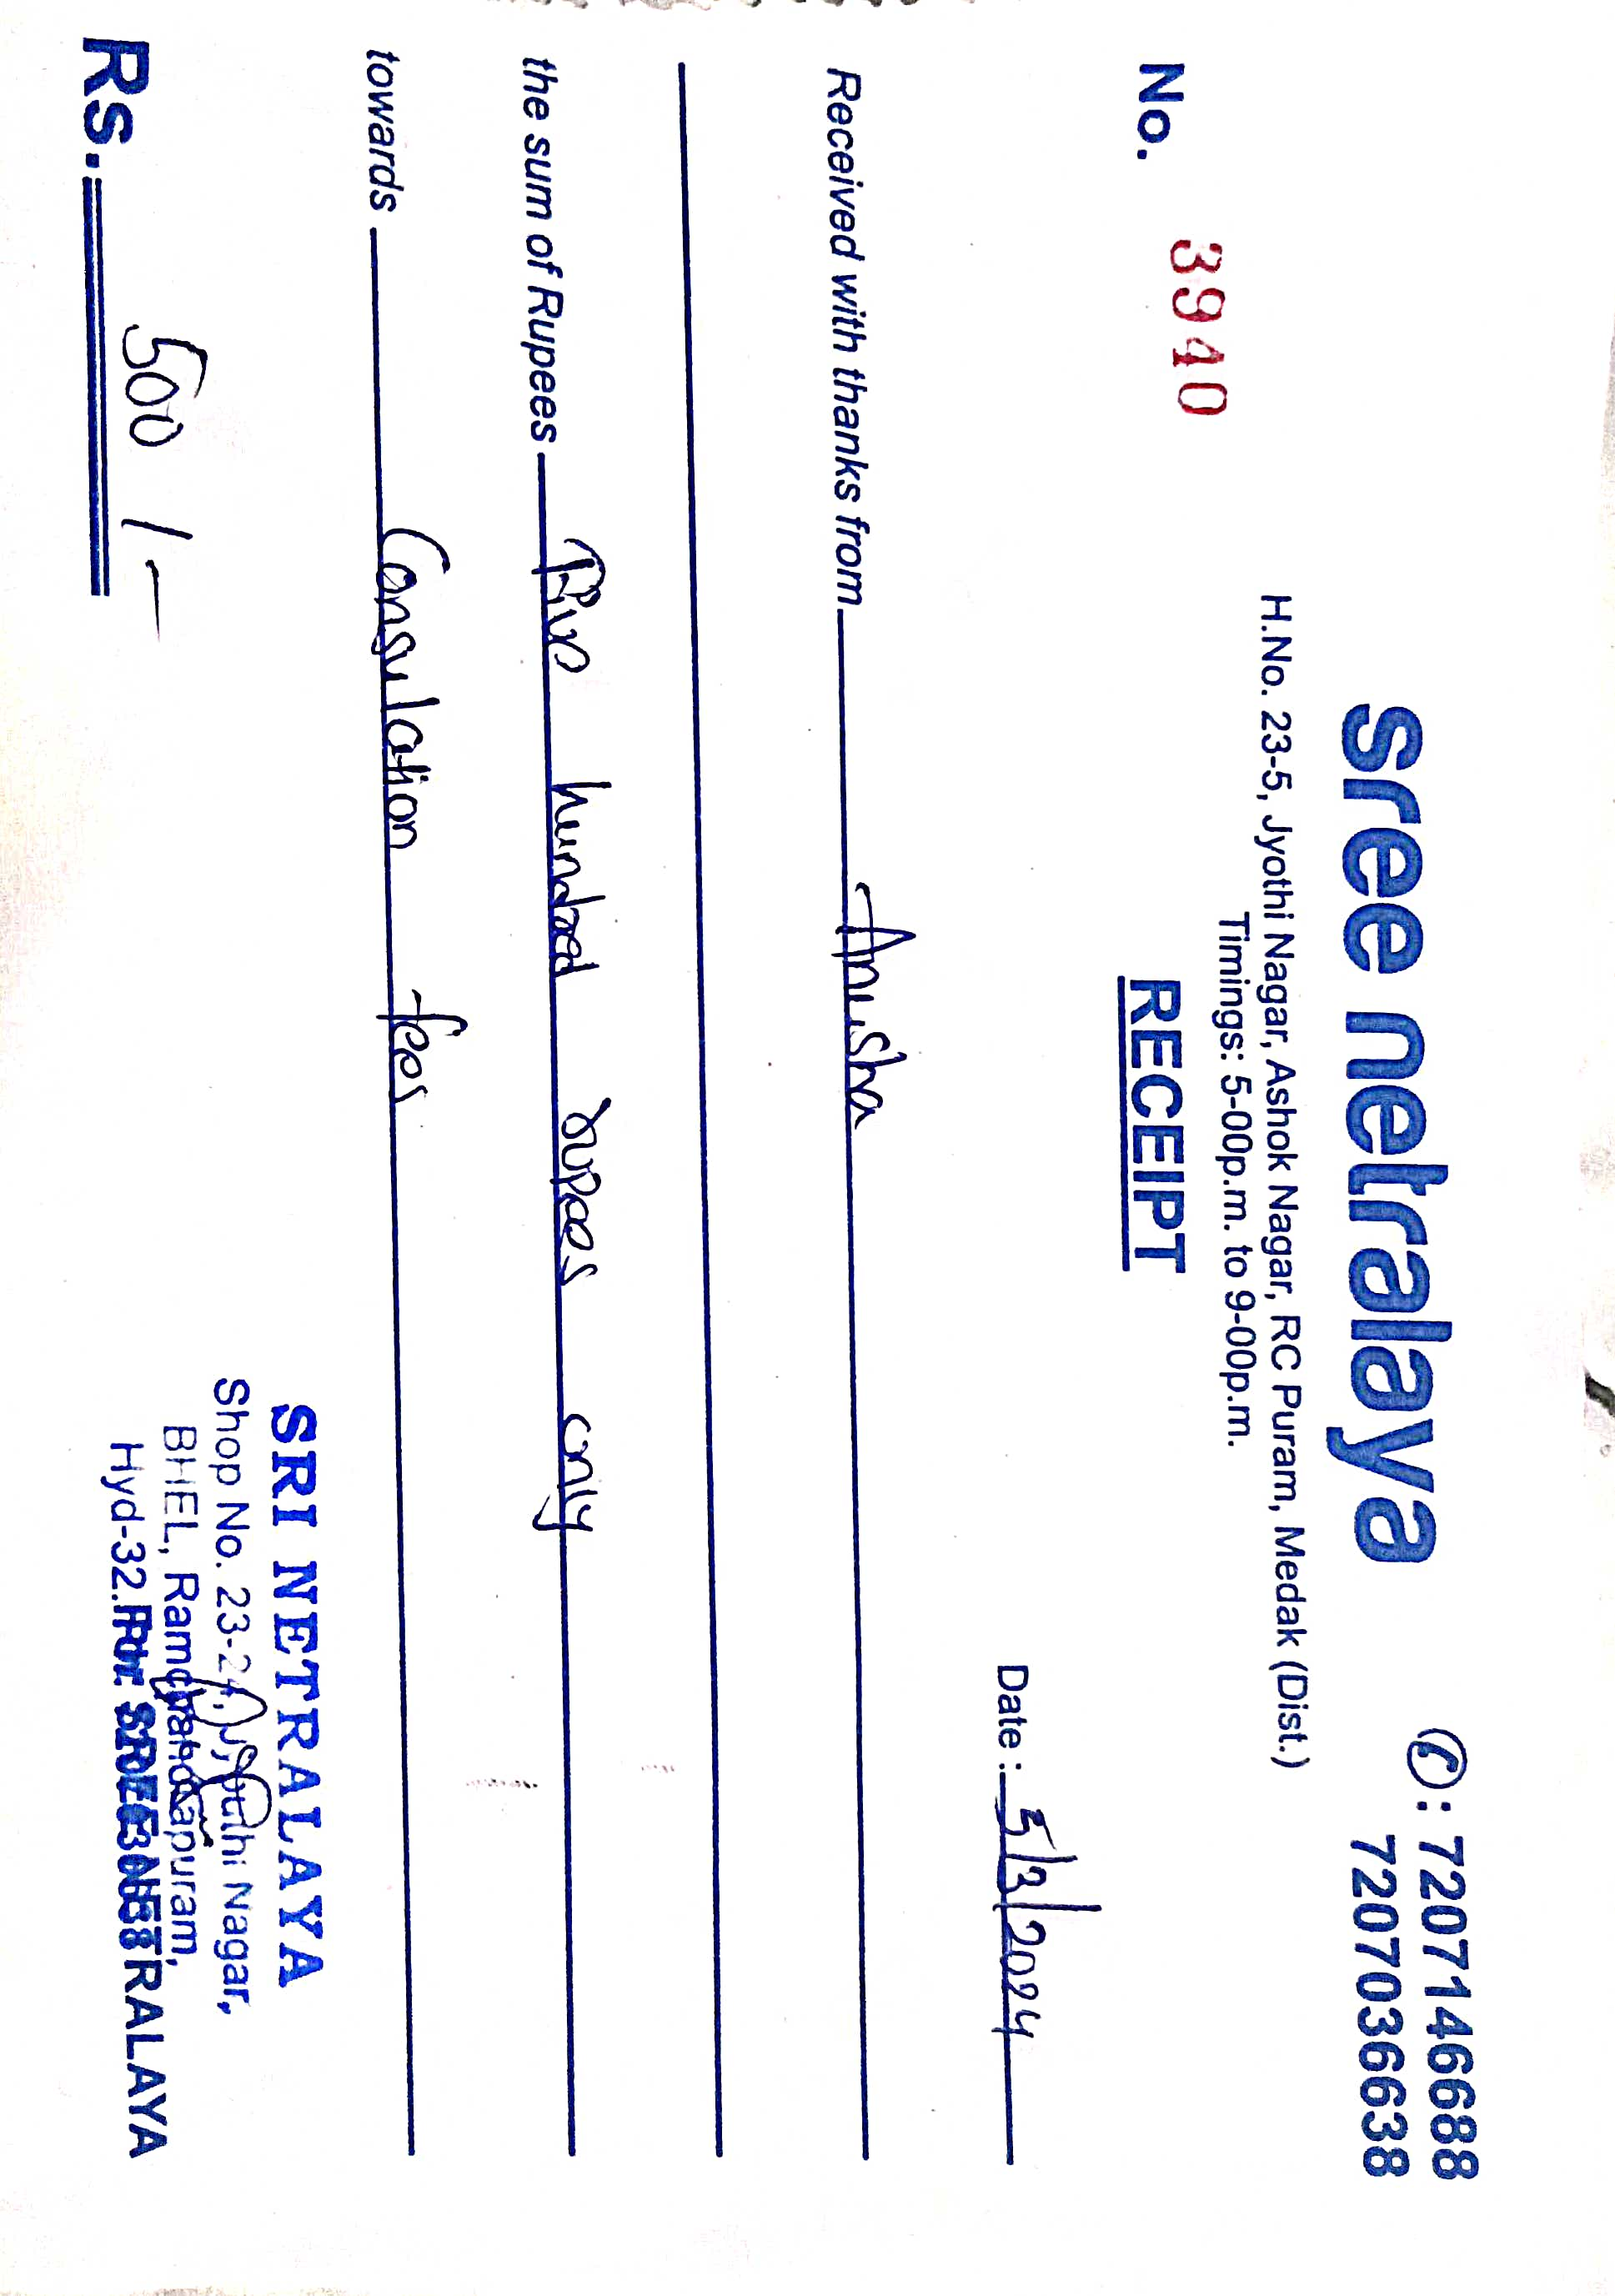 ✆: 7207146688
7207036638
sree netralaya
H.No. 23-5, Jyothi Nagar, Ashok Nagar, RC Puram, Medak (Dist.)
Timings: 5-00p.m. to 9-00p.m.
RECEIPT
No. 3940
Date: 5/3/2024
Received with thanks from Anusha
the sum of Rupees Five hundred rupees only
towards Consulation fees
Rs. 500/-
SRI NETRALAYA
Shop No. 23-24, Jyothi Nagar,
BHEL, Ramchandrapuram,
Hyd-32.
For SREE NETRALAYA